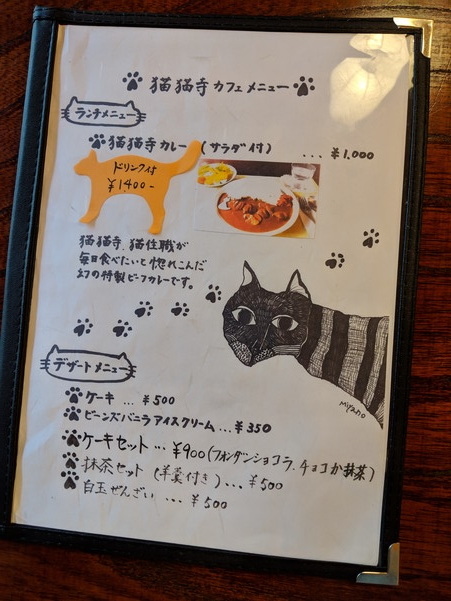 猫猫寺カフェメニュー
ランチメニュー
猫猫寺カレー (サラダ付) ...¥1,000
ドリンク付
¥1400-
猫猫寺、猫住職が
毎日食べたいと惚れこんだ
幻の特製ビーフカレーです。
Miyano
デザートメニュー
ケーキ ... ¥500
ビーンズバニラアイスクリーム ... ¥350
ケーキセット ... ¥900(フォンダンショコラ、チョコか抹茶)
抹茶セット (羊羹付き) ... ¥500
白玉ぜんざい ... ¥500